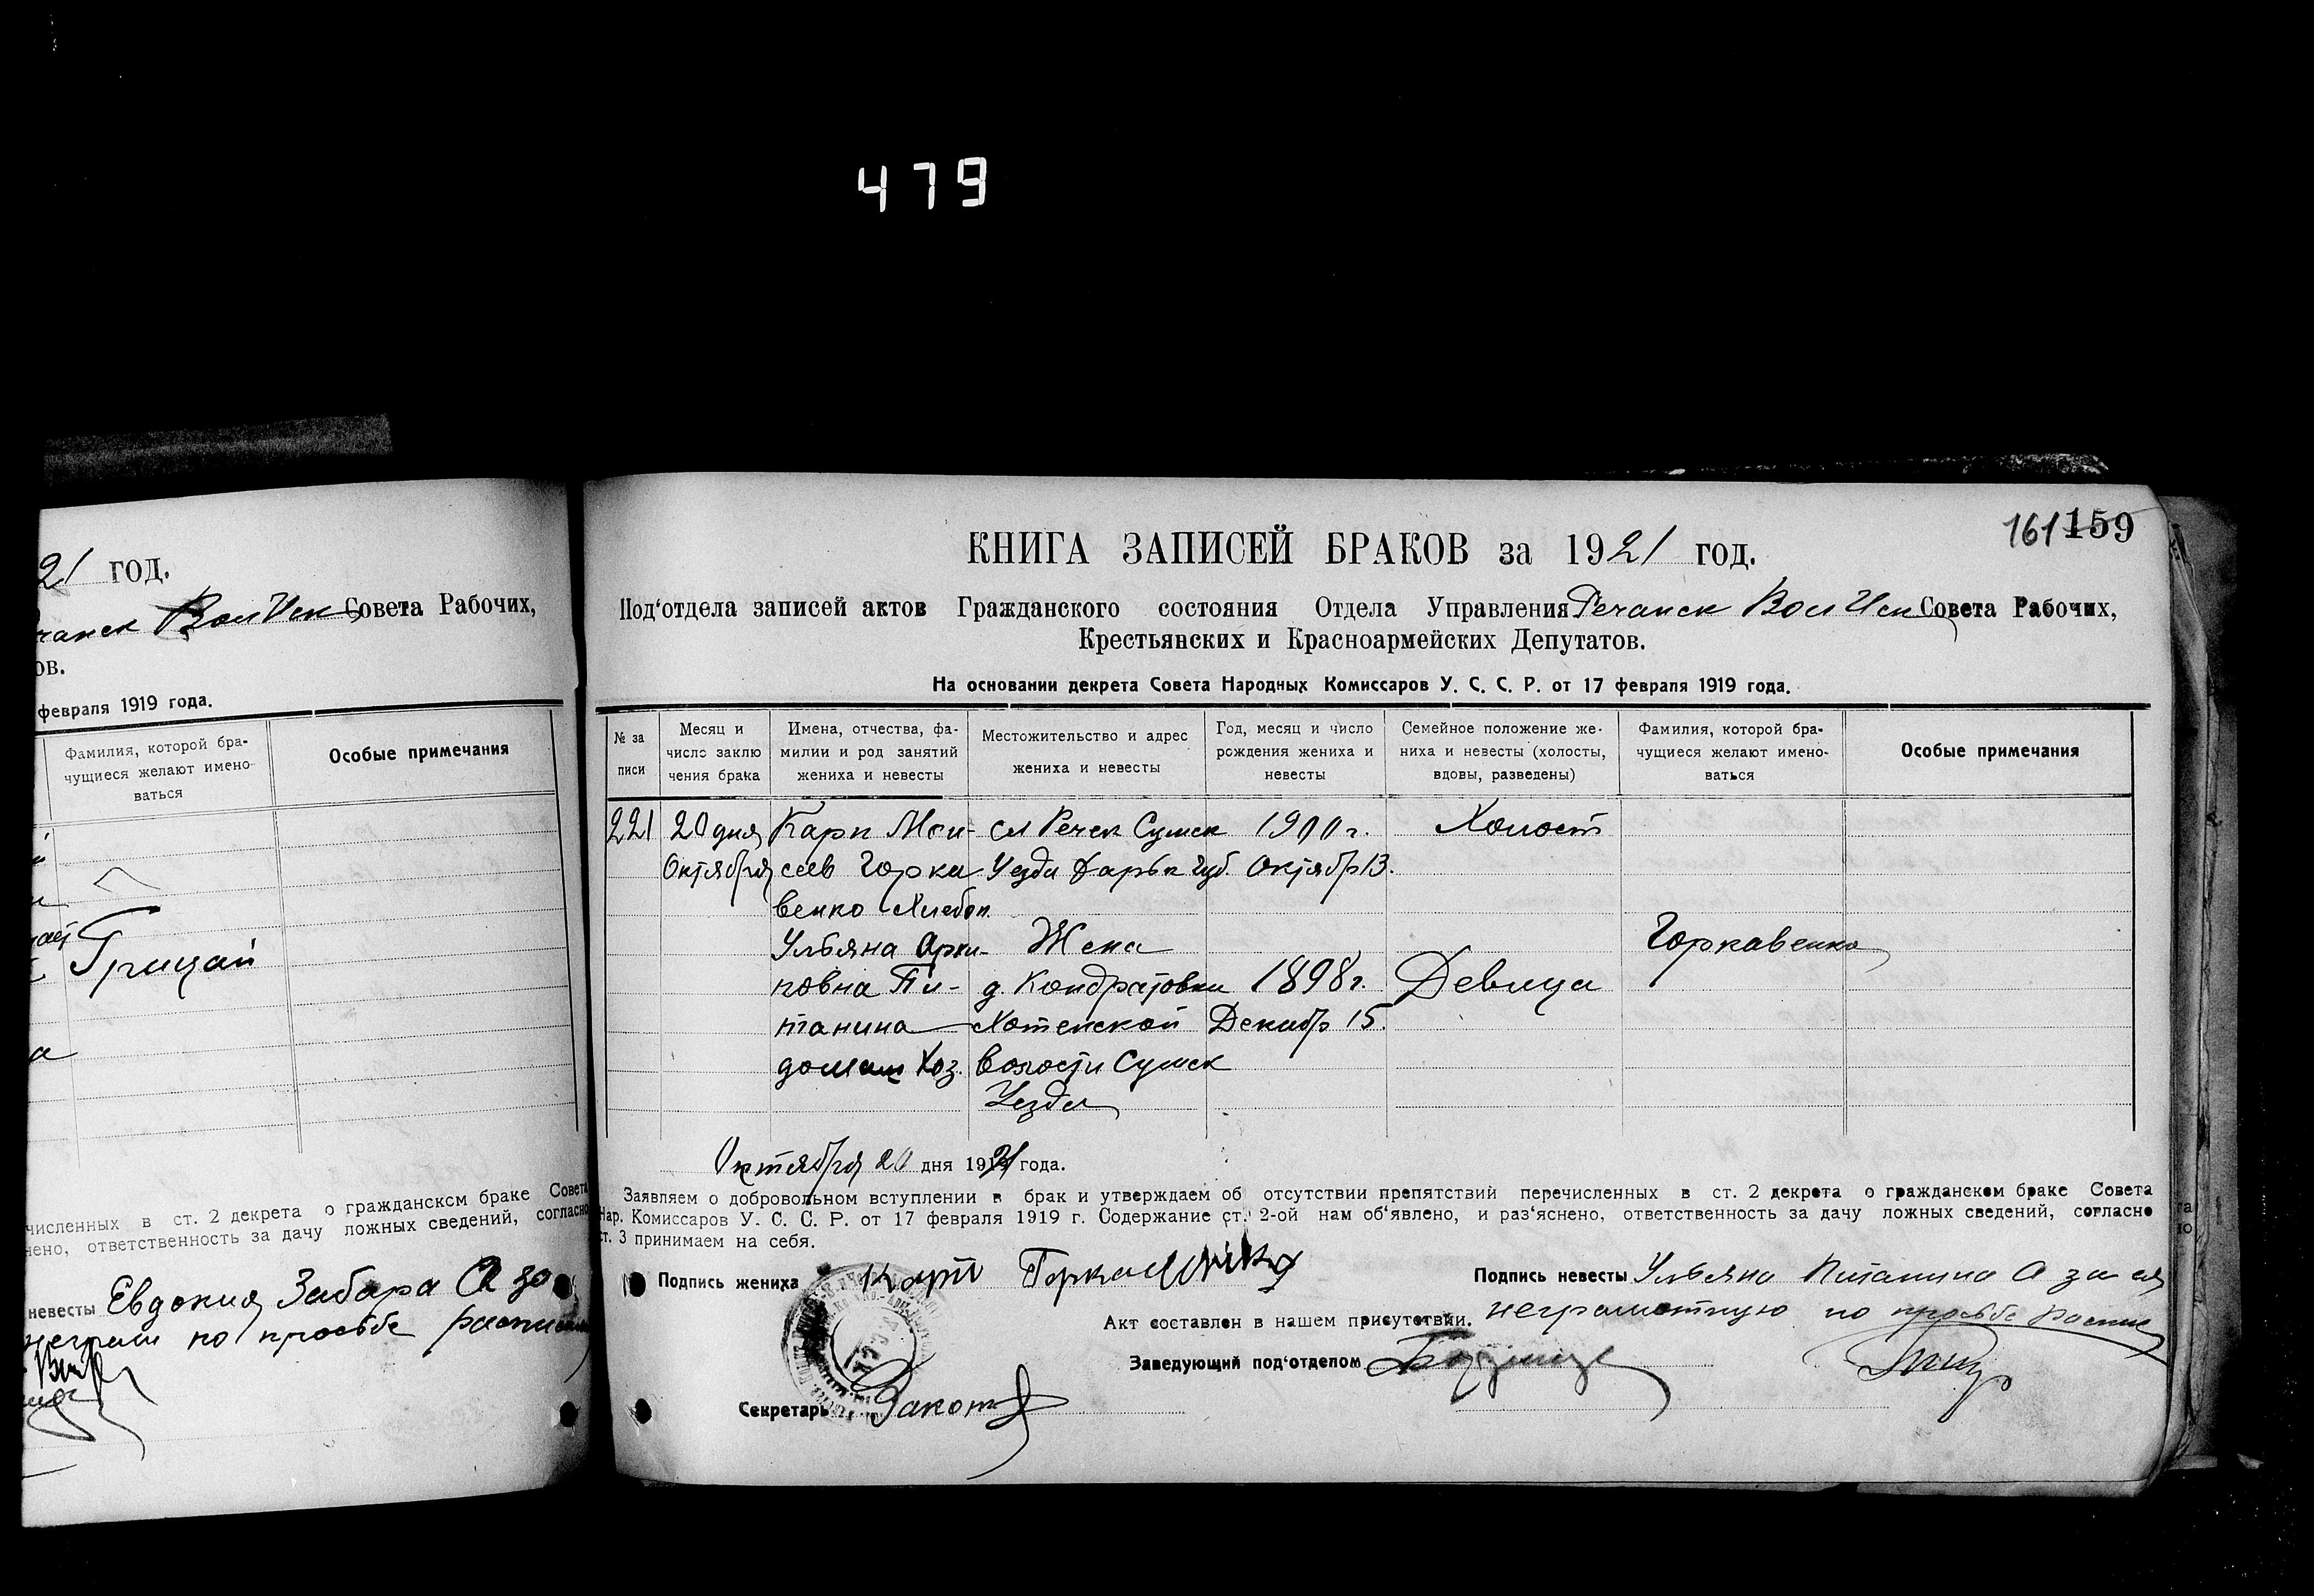 479
21 год.
Вол Исп Совета Рабочих,
ов.
февраля 1919 года.
Фамилия, которой бра-
чущиеся желают имено-
ваться
Особые примечания
Грицай
численных в ст. 2 декрета о гражданском браке Совета
нено, ответственность за дачу ложных сведений, согласно
невесты Евдокия Забара А за
неграм по просьбе
161 159
КНИГА ЗАПИСЕЙ БРАКОВ за 1921 год.
Под‘отдела записей актов Гражданского состояния Отдела Управления Речанск Вол Исп Совета Рабочих,
Крестьянских и Красноармейских Депутатов.
На основании декрета Совета Народных Комиссаров У. С. С. Р. от 17 февраля 1919 года.
№ за
писи
Месяц и
число заклю
чения брака
Имена, отчества, фа-
милии и род занятий
жениха и невесты
Местожительство и адрес
жениха и невесты
Год, месяц и число
рождения жениха и
невесты
Семейное положение же-
ниха и невесты (холосты,
вдовы, разведены)
Фамилия, которой бра-
чущиеся желают имено-
ваться
Особые примечания
221 20 дня Карп Мои- сл Речек Сумск 1900 г. Холост
Октября сеев Горка- Уезда Харьк губ. Октябр 13.
венко Хлебоп.
Ульяна Архи- Жена Горкавенко
повна Пи- д. Кондратовки 1898 г. Девица
танина Хотенской Декабр 15.
домаш хоз. волости Сумск
Уезда
Октября 20 дня 1921 года.
Заявляем о добровольном вступлении в брак и утверждаем об отсутствии препятствий перечисленных в ст. 2 декрета о гражданском браке Совета
Нар. Комиссаров У. С. С. Р. от 17 февраля 1919 г. Содержание ст. 2-ой нам об‘явлено, и раз‘яснено, ответственность за дачу ложных сведений, согласно
ст. 3 принимаем на себя.
Подпись жениха Карп
Подпись невесты Ульяна Питанина А за ея
неграмотную по просьбе
Акт составлен в нашем присутствии.
Заведующий под‘отделом
Секретарь